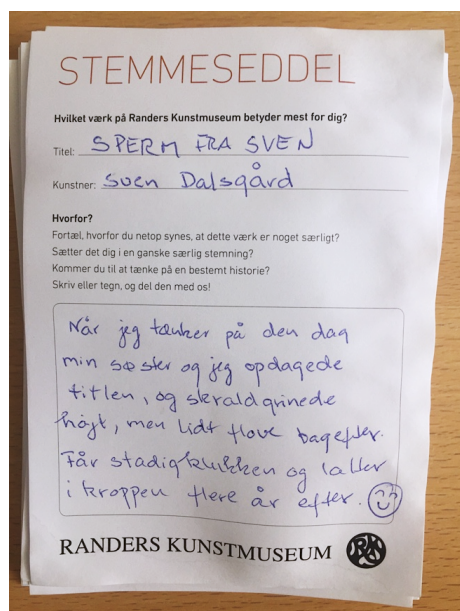 STEMMESEDDEL
Hvilket værk på Randers Kunstmuseum betyder mest for dig?
Titel: SPERM FRA SVEN
Kunstner: Sven Dalsgård
Hvorfor?
Fortæl, hvorfor du netop synes, at dette værk er noget særligt?
Sætter det dig i en ganske særlig stemning?
Kommer du til at tænke på en bestemt historie?
Skriv eller tegn, og del den med os!
Når jeg tænker på den dag
min søster og jeg opdagede
titlen, og skraldgrinede
højt, men lidt flove bagefter.
Får stadig klukken og latter
i kroppen flere år efter.
RANDERS KUNSTMUSEUM